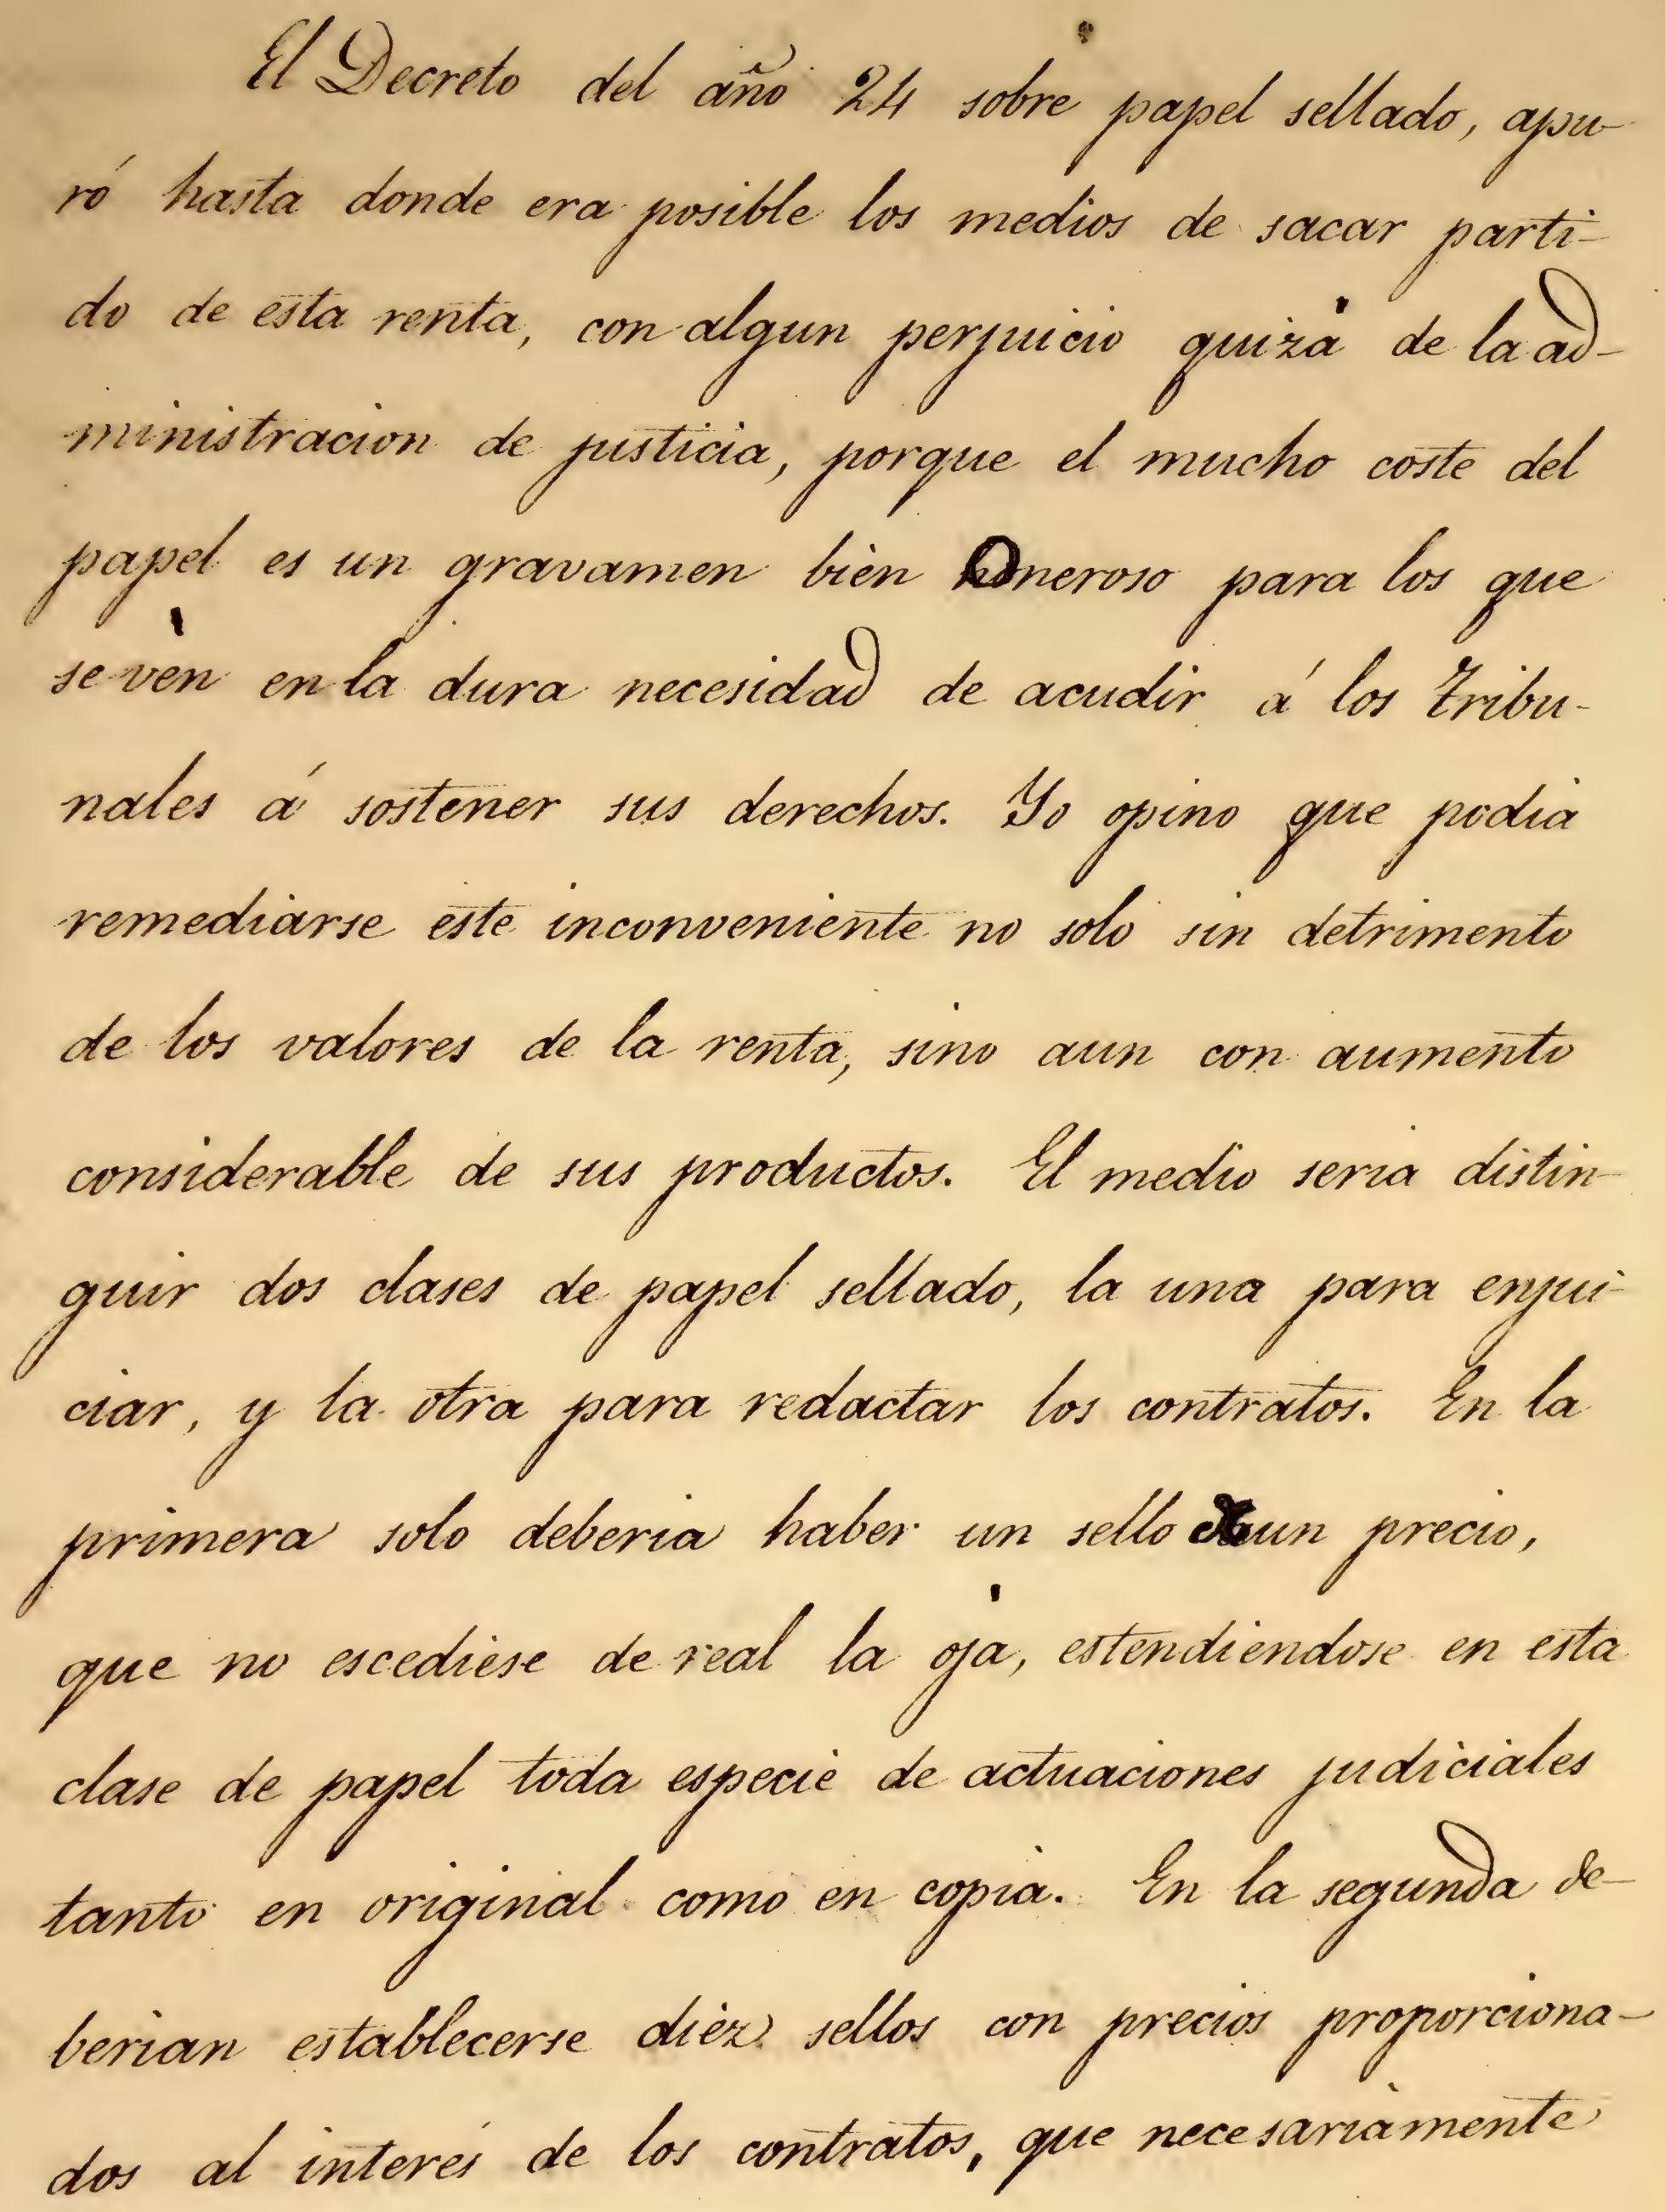 El Decreto del año 24 sobre papel sellado, apu-
ró hasta donde era posible los medios de sacar parti-
do de esta renta, con algun perjuicio quizá de la ad-
ministracion de justicia, porque el mucho coste del
papel es un gravamen bien Oneroso para los que
se ven en la dura necesidad de acudir á los tribu-
nales á sostener sus derechos. Yo opino que podia
remediarse este inconveniente no solo sin detrimento
de los valores de la renta, sino aun con aumento
considerable de sus productos. El medio seria distin-
guir dos clases de papel sellado, la una para enjui-
ciar, y la otra para redactar los contratos. En la
primera solo deberia haber un sello un precio,
que no escediese de real la oja, estendiendose en esta
clase de papel toda especie de actuaciones judiciales
tanto en original como en copia. En la segunda de-
berian establecerse diez sellos con precios proporciona-
dos al interés de los contratos, que necesariamente